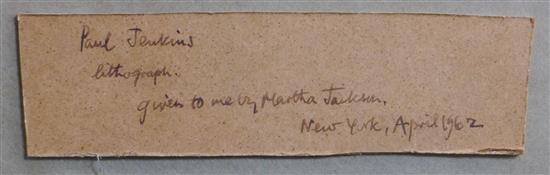 Paul Jenkins
lithograph.
given to me by Martha Jackson.
New York, April 1962